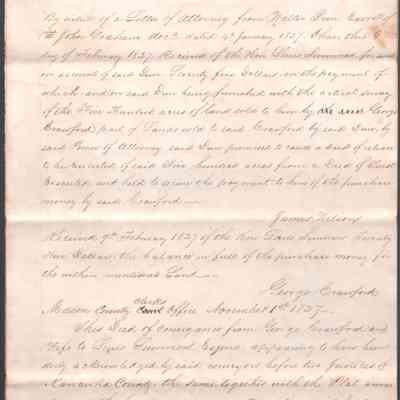 By virtue of a Letter of Attorney from Walter Dun Executor of
John Graham decd. dated 4th January 1827. I have this
day of February 1827. Received of the Hon Lewis Summers for and
on account of said Dun Twenty five Dollars, on the payment of
which and on said Dun being furnished with the actual survey
of the Five Hundred acres of land sold to him by George
Crawford, part of Lands sold to said Crawford by said Dun, by
said Power of Attorney said Dun promised to cause a deed of release
to be executed of said Five hundred acres from a Deed of Trust
executed and held to secure the payment to him of the purchase
money by said Crawford
James Wilson
Received 7th February 1827 of the Hon Lewis Summers Twenty
five Dollars, the balance in full of the purchase money for
the within mentioned Land
George Crawford
Mason County Clerks Office November 1st 1827
This Deed of conveyance from George Crawford and
Wife to Lewis Summers Esquire appearing to have been
duly acknowledged by said conveyors before two Justices of
Kanawha County, the same together with the Plat